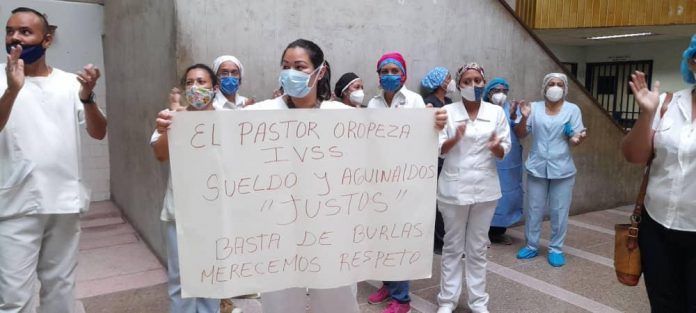 EL PASTOR OROPEZA
IVSS
SUELDO Y AGUINALDOS
"JUSTOS"
BASTA DE BURLAS
MERECEMOS RESPETO